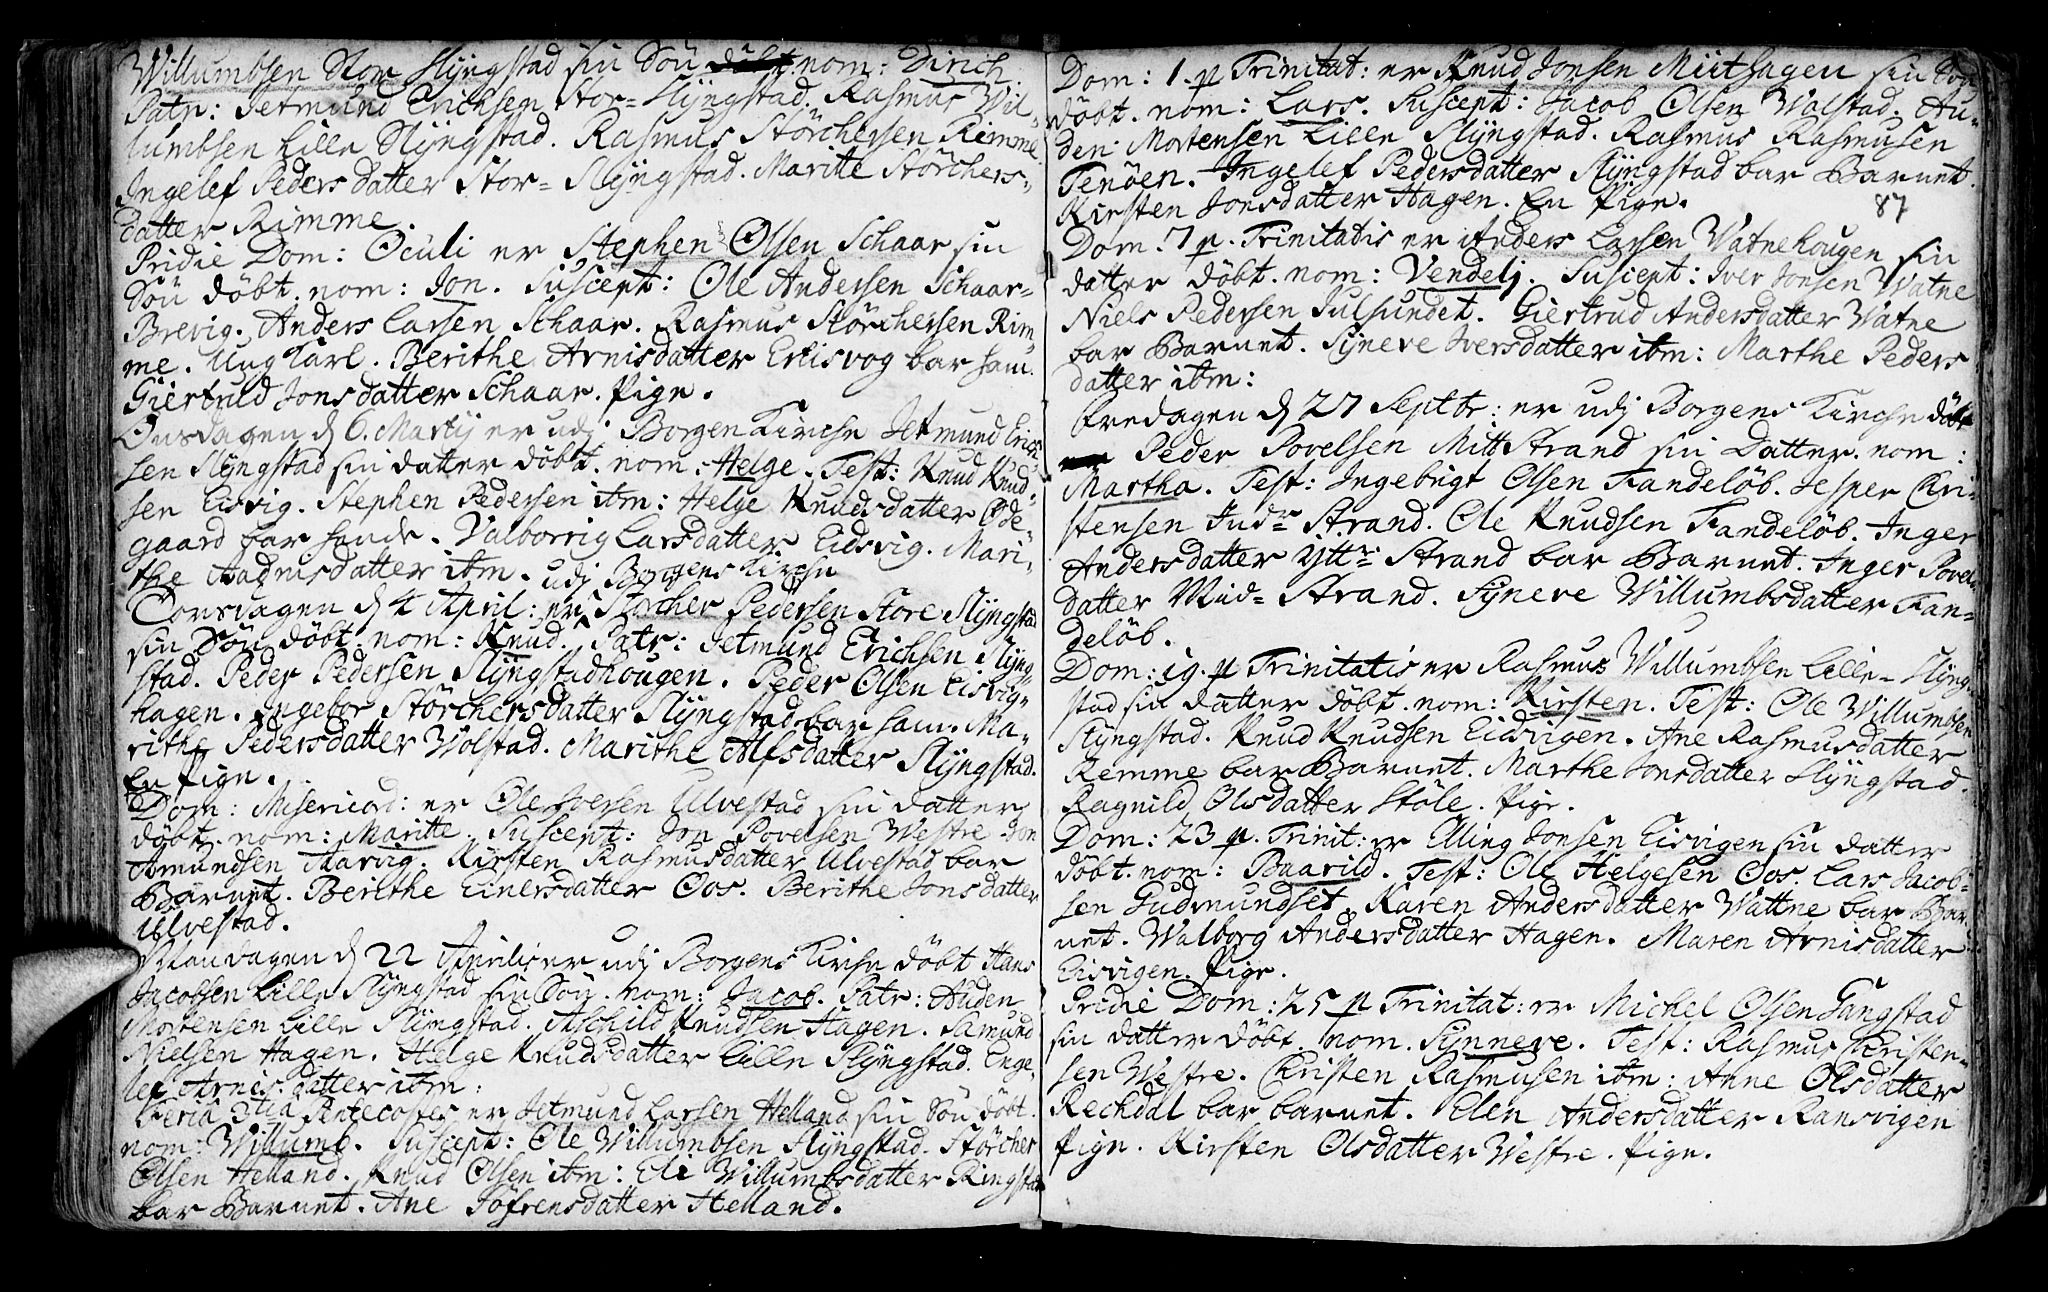 Willumbsen Stor Slÿngstad sin Sön döbt. nom: Dirich.
Patr: Jetmund Erichsen Stor- Slÿngstad. Rasmus Wil-
lumbsen Lille Slÿngstad. Rasmus Störchersen Rimme.
Ingelef Peders datter Stor- Slÿngstad. Maritte Störchers-
datter Rimme.
Pridie Dom: Oculi er Stephen Olsen Schaar sin
Sön döbt. nom: Jon. Suscept: Ole Andersen Schaar-
Brevig. Anders Larsen Schaar. Rasmus Störchersen Rim
me. Ung Karl. Berithe Arnisdatter Erisvog bar ham.
Giertrud Jonsdatter Schaar. Pige.
Onsdagen d 6. Martij er udj Borgen Kirche Jetmund Erich-
sen Slÿngstad sin datter döbt. nom: Helge. Test: Knud Knud-
sen Eisvig. Stephen Pedersen ibm: Helge Knudsdatter Öde-
gaard bar hende. Valborrig Larsdatter Eidsvig. Mari-
the Aadnisdatter ibm. udj Borgens Kirche
Torsdagen d 4 April: er Störcher Pedersen Store Slÿngstad
sin Sön döbt. nom: Knud. Patr: Jetmund Erichsen Slÿng-
stad. Peder Pedersen Slÿngstadhougen. Peder Olsen Eisvig-
hagen. Ingebor Störchersdatter Slÿngstad bar ham. Ma-
rithe Pedersdatter Wolstad. Marithe Alfsdatter Slÿngstad.
En Pige.
Dom: Misericod: er Ole Iversen Ulvestad sin datter
döbt. nom: Maritte. Suscept: Jon Povelsen Westre. Jon
Amundsen Aarvig. Kirsten Rasmusdatter Ulvestad bar
Barnet. Berithe Einersdatter Oos. Berithe Jonsdatter
Ulvestad.
Mandagen d 22 Aprilis er udj Borgens Kirche döbt Hans
Jacobsen Lille Slÿngstad sin Sön. nom: Jacob. Patr: Auden
Mortensen Lille Slÿngstad. Aschild Knudsen Hagen. Samund
Nielsen Hagen. Helge Knudsdatter Lille Slÿngstad. Enge-
lef Arnis datter ibm:
Feria 3tia Pentecostes er Jetmund Larsen Helland sin Sön döbt.
nom: Willumb. Suscept: Ole Willumbsen Slÿngstad. Störcher
Olsen Helland. Knud Olsen ibm: Ele Willumbsdatter Ringstad
bar Barnet. Ane Söfrensdatter Helland.
Dom: 1. p Trinitat: er Knud Jonsen Miithagen sin Sön
döbt. nom: Lars. Suscept: Jacob Olsen Wolstad. Au-
den Mortensen Lille Slÿngstad. Rasmus Rasmusen
Tenöen. Ingelef Pedersdatter Slÿngstad bar Barnet.
Kirsten Jonsdatter Hagen. En Pige.
87
Dom. 7 p. Trinitatis er Anders Larsen Watnehougen sin
datter döbt. nom: Vendelj. Suscept: Iver Jonsen Watne
Niels Pedersen Julsundet. Giertrud Andersdatter Watne
bar Barnet. Sÿneve Iversdatter ibm: Marthe Peders
datter ibm:
Fredagen d 27 Septbr: er udj Borgens Kirche döbt
Peder Povelsen Mitt Strand sin Datter. nom:
Martha. Test: Ingebrigt Olsen Fandelöb. Jesper Chri-
stensen Indr Strand. Ole Knudsen Fandelöb. Inger
Andersdatter ÿttr Strand bar Barnet. Inger Povels
datter Mid- Strand. Sÿneve Willumbsdatter Fan-
delöb.
Dom: 19. p Trinitatis er Rasmus Willumbsen Lille- Slÿng-
stad sin datter döbt. nom: Kirsten. Test: Ole Willumbsen
Slÿngstad. Knud Knudsen Eidsvigen. Ane Rasmusdatter
Remme bar Barnet. Marthe Jonsdatter Slÿngstad.
Ragnild Olsdatter Stöle. Pige.
Dom: 23 p. Trinit: er Elling Jonsen Eisvigen sin datter
döbt. nom: Baarild. Test: Ole Helgesen Oos. Lars Jacob-
sen Gudmundset. Karen Andersdatter Wattne bar Bar-
net. Walborg Andersdatter Hagen. Maren Arnisdatter
Eisvigen. Pige.
Pridie Dom: 25 p Trinitat: er Michel Olsen Gangstad
sin datter döbt. nom. Sÿnneve. Test: Rasmus Christen-
sen Westre. Christen Rasmusen ibm: Anne Olsdatter
Rechdal bar barnet. Elen Andersdatter Ransvigen
Pige. Kirsten Olsdatter Westre. Pige.